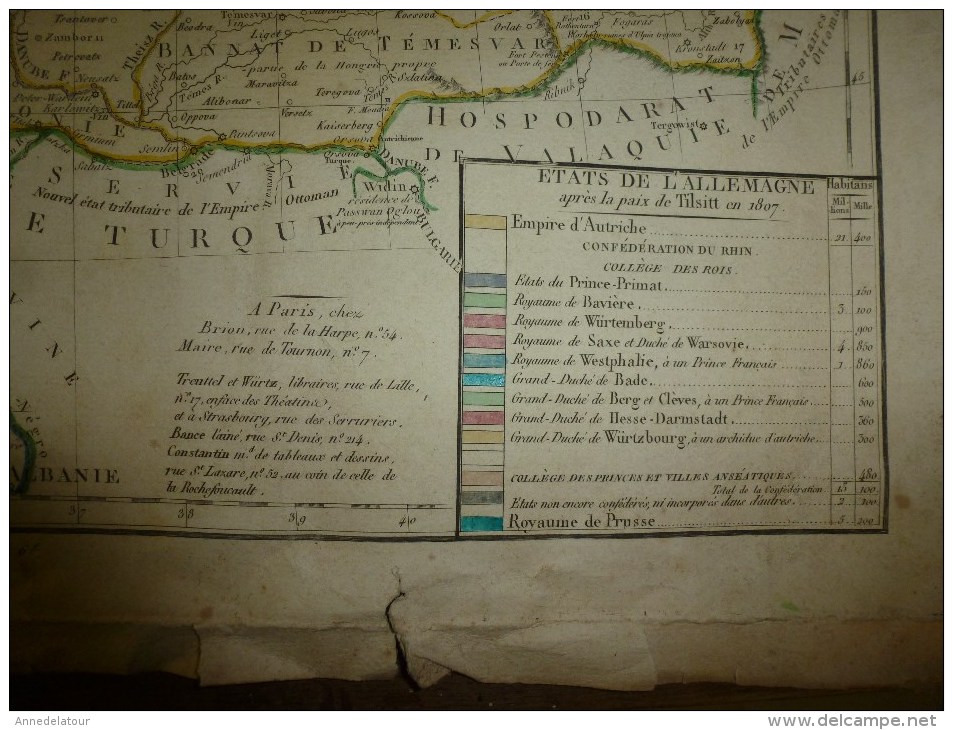 Trantover
Denta
Bosdra
Temesvar
Vin
Kossova
Orlat
Fogaras
Zabolya
Zambor 11
Petrovats
Theisz R.
Liget
Luges
BANNAT DE TÉMESVAR
partie de la Hongrie propre
Kronstadt 17
Zaitzon
DANUBE F
Neusatz
Betos
Témes R.
Maravitza
Teregova
Slatina
Ribnik
45
Tributaires
de l'Empire Ottoman
Peter-Wardein
Karlowitz
Tittel
Alibonar
Versetz
F. Meadia
HOSPODARAT
Tergowist
DE VALAQUIE
Oppova
Kaiserberg
Orsova Autrichienne
Semlin
Pantsova
Orsova Turque
Sabatz
Belgrade
20
Semendria
SERVIE
DANUBE F.
Nouvel état tributaire de l'Empire Ottoman
Widin
résidence de
Passwan Oglou
à peu près indépendant
BULGARIE
TURQUE
ETATS DE L'ALLEMAGNE
après la paix de Tilsitt en 1807.
Habitans
Millions Mille
Empire d'Autriche 21 400
CONFÉDÉRATION DU RHIN.
COLLÈGE DES ROIS.
Etats du Prince-Primat 160
Royaume de Bavière 3 100
Royaume de Würtemberg 900
Royaume de Saxe et Duché de Warsovie 4 850
Royaume de Westphalie, à un Prince Français 1 860
Grand-Duché de Bade 600
Grand-Duché de Berg et Clèves, à un Prince Français 500
Grand-Duché de Hesse-Darmstadt 360
Grand-Duché de Würtzbourg, à un archiduc d'autriche 300
COLLÈGE DES PRINCES ET VILLES ANSÉATIQUES 480
Total de la Confédération 13 100
Etats non encore confédérés, ni incorporés dans d'autres 2 100
Royaume de Prusse 5 200
A Paris, chez
Brion, rue de la Harpe, n.º 54.
Maire, rue de Tournon, n.º 7.
Treuttel et Würtz, libraires, rue de Lille,
n.º 17, en face des Théatins,
et à Strasbourg, rue des Serruriers.
Bance l'ainé, rue S.t Denis, n.º 214.
Constantin m.d de tableaux et dessins,
rue S.t Lazare, n.º 52. au coin de celle de
la Rochefoucault.
ALBANIE
37 38 39 40
Annedelatour
www.delcampe.net